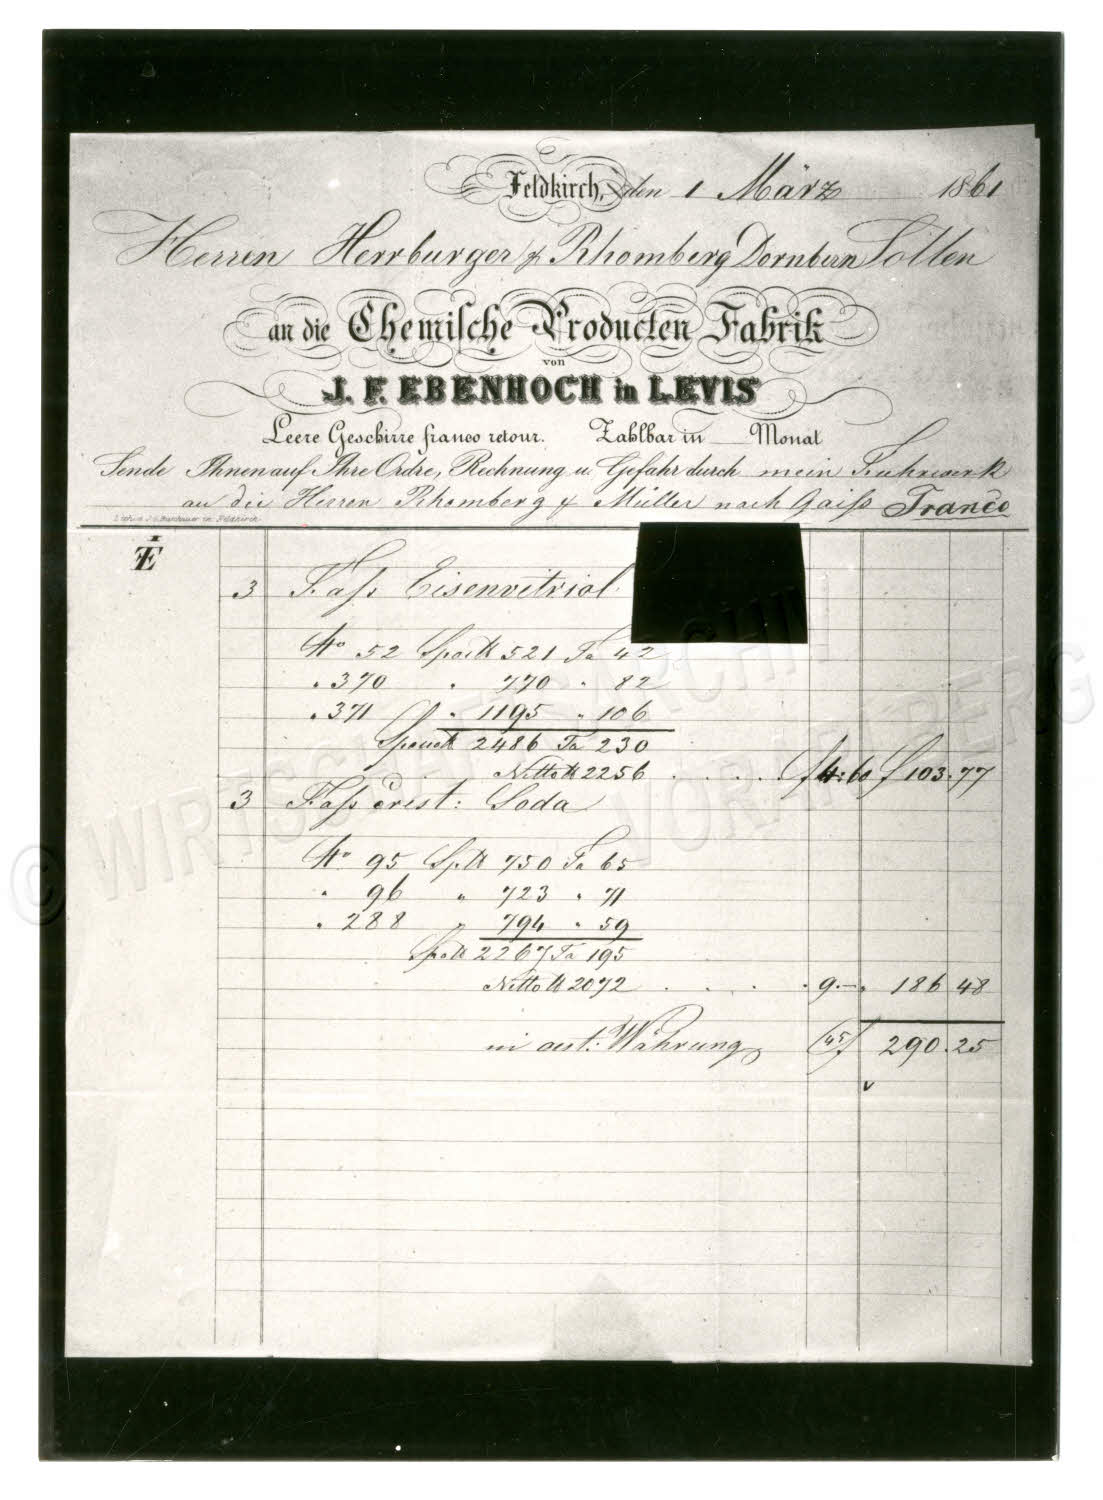 Feldkirch, den 1 März 1861
Herren Herrburger & Rhomberg Dornbirn Sollen
an die Chemische Producten Fabrik
von
J. F. EBENHOCH in LEVIS
Leere Geschirre franco retour. Zahlbar in Monat
Sende Ihnen auf Ihre Ordre, Rechnung u. Gefahr durch mein Fuhrwerk
an die Herren Rhomberg & Müller nach Gaiss Franco
in Feldkirch
3 Fass Eisenvitriol
No 52 Sporco ℔ 521 Ta 42
" 370 " 770 " 82
" 371 " 1195 " 106
Sporco ℔ 2486 Ta 230
Netto ℔ 2256 . . . . f 4.60 f 103.77
3 Fass crist: Soda
No 95 Sp ℔ 750 Ta 65
" 96 " 723 " 71
" 288 " 794 " 59
Spo ℔ 2267 Ta 195
Netto ℔ 2072 . . . . 9.— " 186 48
in oest: Währung (45) f 290.25
© WIRTSCHAFTSARCHIV
VORARLBERG